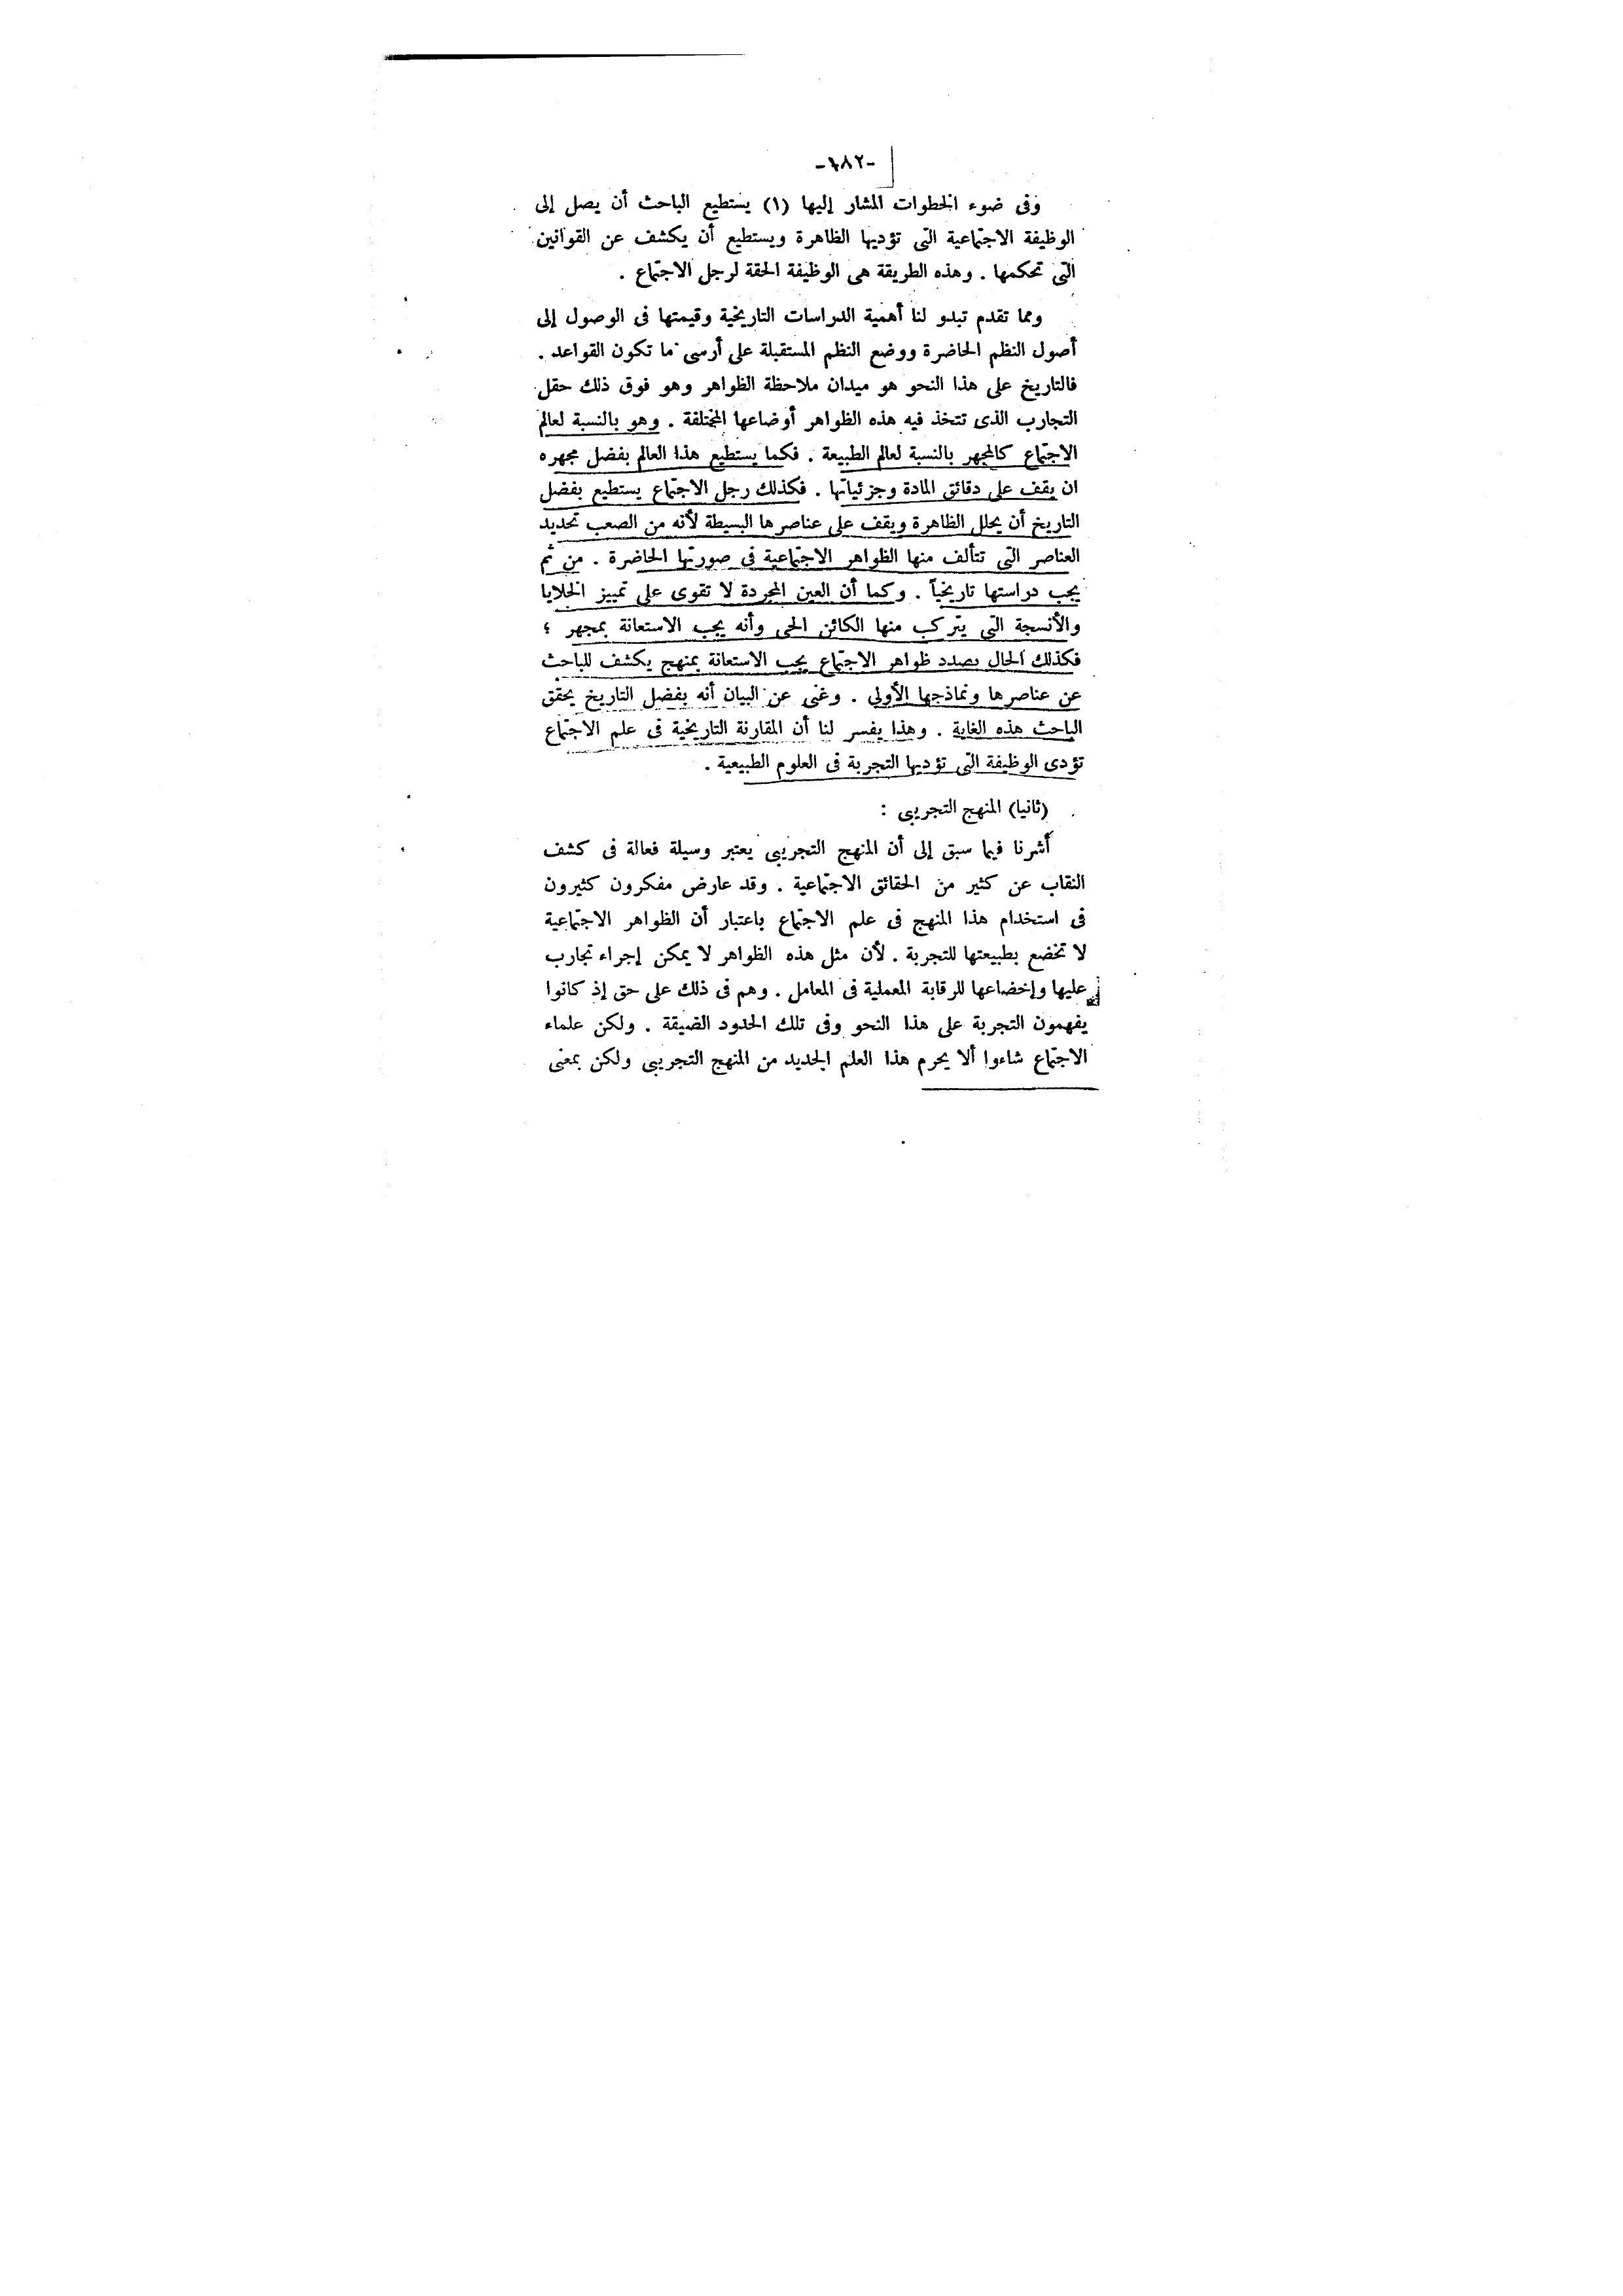 -١٨٢-
وفى ضوء الخطوات المشار إليها (١) يستطيع الباحث أن يصل إلى
الوظيفة الاجتماعية التى تؤديها الظاهرة ويستطيع أن يكشف عن القوانين
التى تحكمها . وهذه الطريقة هى الوظيفة الحقة لرجل الاجتماع .
ومما تقدم تبدو لنا أهمية الدراسات التاريخية وقيمتها فى الوصول إلى
أصول النظم الحاضرة ووضع النظم المستقبلة على أرسى ما تكون القواعد .
فالتاريخ على هذا النحو هو ميدان ملاحظة الظواهر وهو فوق ذلك حقل
التجارب الذى تتخذ فيه هذه الظواهر أوضاعها المختلفة . وهو بالنسبة لعالم
الاجتماع كالمجهر بالنسبة لعالم الطبيعة . فكما يستطيع هذا العالم بفضل مجهره
ان يقف على دقائق المادة وجزئياتها . فكذلك رجل الاجتماع يستطيع بفضل
التاريخ أن يحلل الظاهرة ويقف على عناصرها البسيطة لأنه من الصعب تحديد
العناصر التى تتألف منها الظواهر الاجتماعية فى صورتها الحاضرة . من ثم
يجب دراستها تاريخياً . وكما أن العين المجردة لا تقوى على تمييز الخلايا
والأنسجة التى يتركب منها الكائن الحى وأنه يجب الاستعانة بمجهر ؛
فكذلك الحال بصدد ظواهر الاجتماع يجب الاستعانة بمنهج يكشف للباحث
عن عناصرها ونماذجها الأولى . وغنى عن البيان أنه بفضل التاريخ يحقق
الباحث هذه الغاية . وهذا يفسر لنا أن المقارنة التاريخية فى علم الاجتماع
تؤدى الوظيفة التى تؤديها التجربة فى العلوم الطبيعية .
(ثانيا) المنهج التجريبى :
أشرنا فيما سبق إلى أن المنهج التجريبى يعتبر وسيلة فعالة فى كشف
النقاب عن كثير من الحقائق الاجتماعية . وقد عارض مفكرون كثيرون
فى استخدام هذا المنهج فى علم الاجتماع باعتبار أن الظواهر الاجتماعية
لا تخضع بطبيعتها للتجربة . لأن مثل هذه الظواهر لا يمكن إجراء تجارب
عليها وإخضاعها للرقابة المعملية فى المعامل . وهم فى ذلك على حق إذ كانوا
يفهمون التجربة على هذا النحو وفى تلك الحدود الضيقة . ولكن علماء
الاجتماع شاءوا ألا يحرم هذا العلم الجديد من المنهج التجريبى ولكن بمعنى